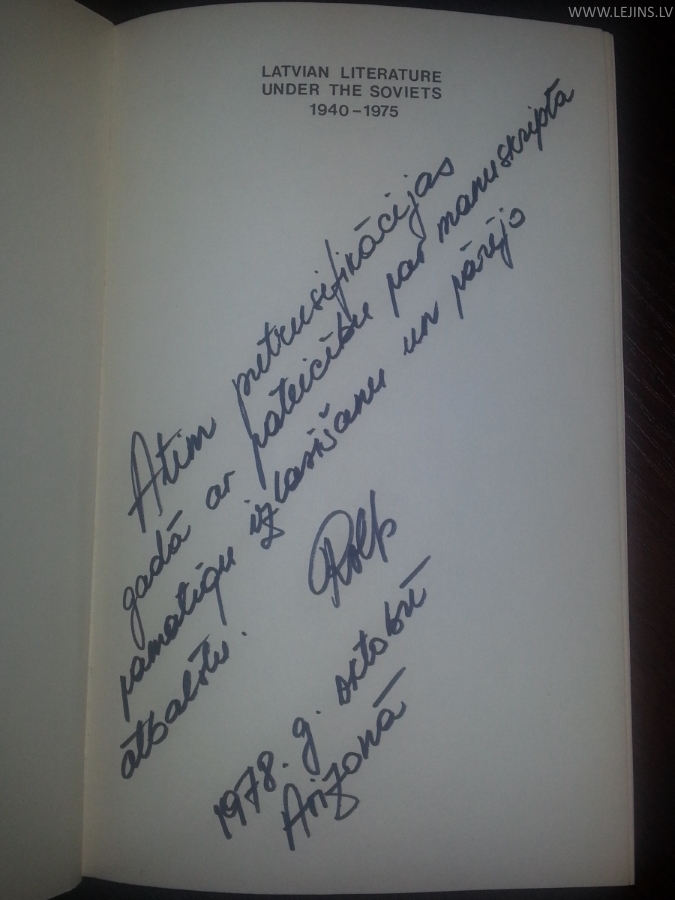 WWW.LEJINS.LV
LATVIAN LITERATURE
UNDER THE SOVIETS
1940–1975
Atim putrusifikācijas
gadā ar pateicību par manuskripta
pamatīgu izlasīšanu un pārējo
atbalstu.
Rolfs
1978. g. oktobrī
Arizonā